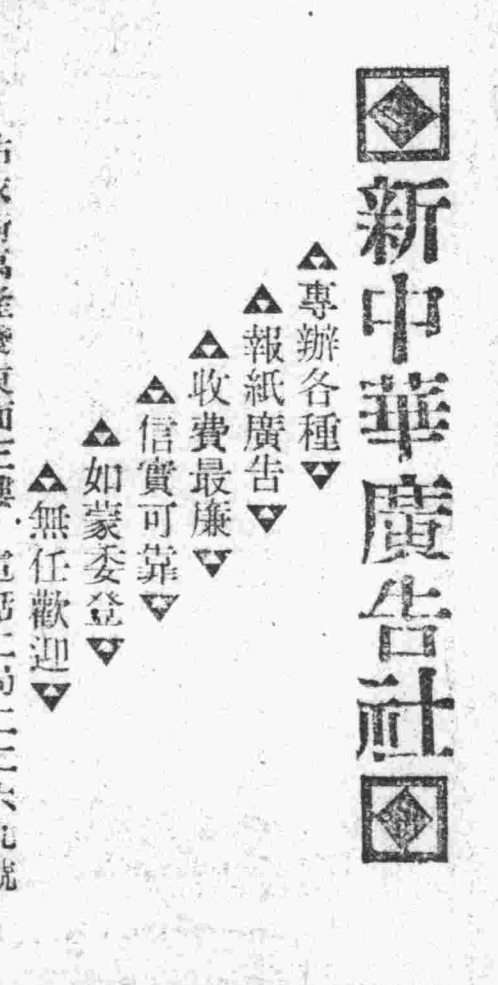 新中華廣告社
專辦各種
報紙廣告
收費最廉
信實可靠
如蒙委登
無任歡迎